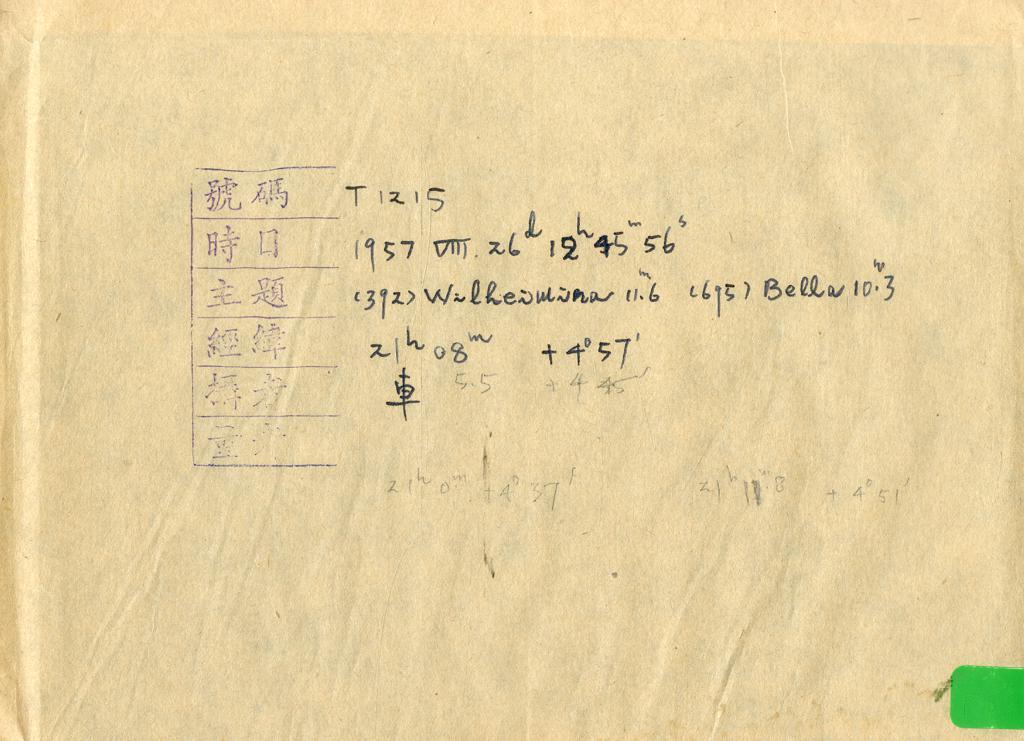 號碼 T 1215
時日 1957 VIII. 26ᵈ 12ʰ 45ᵐ 56ˢ
主題 (392) Wilhelmina 11ᵐ.6 (695) Bella 10ᵐ.3
經緯 21ʰ 08ᵐ +4°57′
5.5 +4 45′
車
21ʰ 0ᵐ. +4° 37′ 21ʰ 11ᵐ.8 + 4° 51′